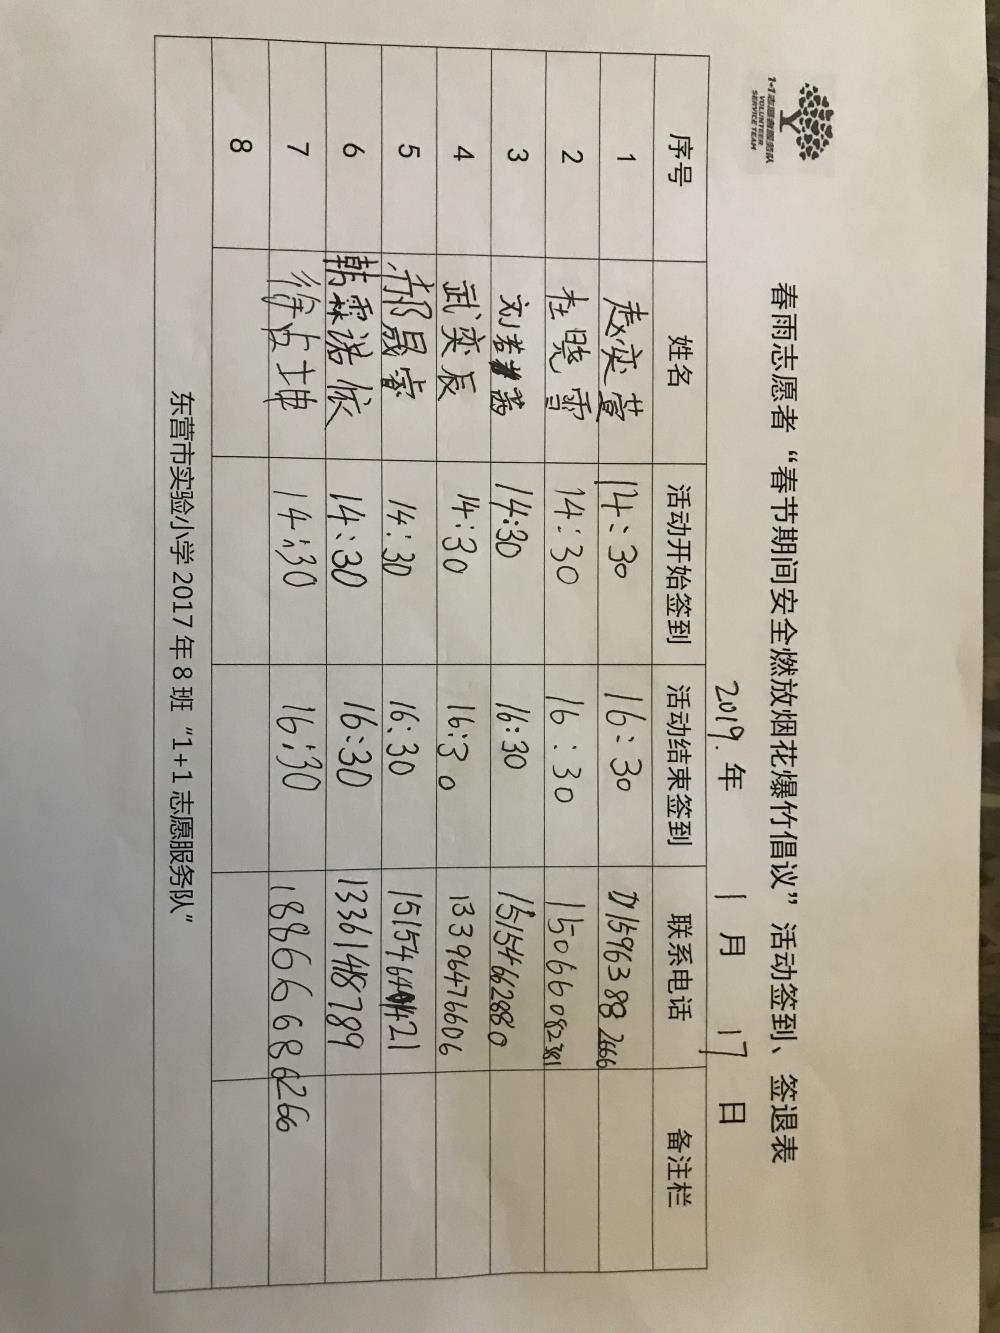 1+1志愿者服务队
VOLUNTEER
SERVICE TEAM
春雨志愿者“春节期间安全燃放烟花爆竹倡议”活动签到、签退表
2019.年 1月 17日
序号 姓名 活动开始签到 活动结束签到 联系电话 备注栏
1 赵奕萱 14:30 16:30 15963882666
2 杜晓雪 14:30 16:30 15066082381
3 刘若茜 14:30 16:30 15154662880
4 武奕辰 14:30 16:30 13396476606
5 晟睿 14:30 16:30
6 韩霖诺依 14:30 16:30 13361487789
7 徐占坤 14:30 16:30 18866686266
8
东营市实验小学 2017 年 8 班“1+1 志愿服务队”